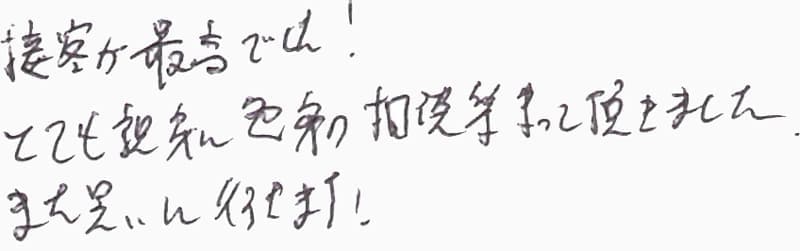 接客が最高でした!
とても親身に色々相談等のって頂きました.
また買いに行きます!